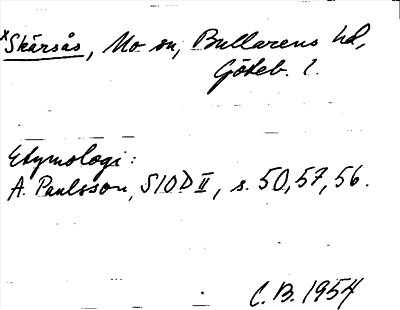 xSkärsås, Mo sn, Bullarens hd,
Göteb. l.
Etymologi:
A. Paulsson, SIOD II, s. 50, 57, 56.
C. B. 1954